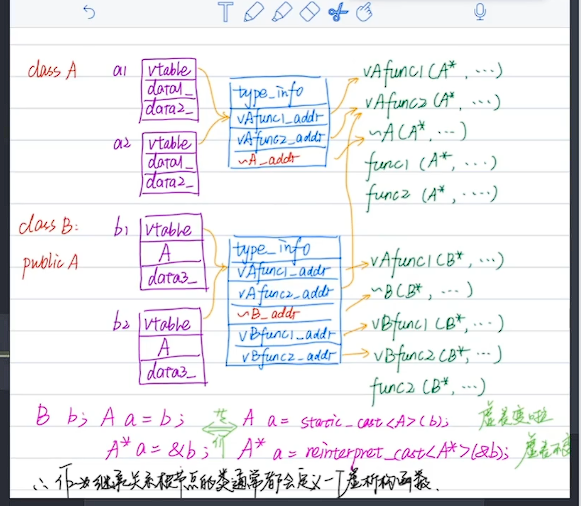 class A
a1
vtable
data1_
data2_
a2
vtable
data1_
data2_
type_info
vAfunc1_addr
vAfunc2_addr
~A_addr
vAfunc1(A*, ...)
vAfunc2(A*, ...)
~A(A*, ...)
func1(A*, ...)
func2(A*, ....)
class B:
public A
b1
vtable
A
data3_
b2
vtable
A
data3_
type_info
vAfunc1_addr
vAfunc2_addr
~B_addr
vBfunc1_addr
vBfunc2_addr
vAfunc1(B*, ...)
~B(B*, ...)
vBfunc1(B*, ...)
vBfunc2(B*, ...)
func2(B*, ...)
B b; A a = b; 等价 A a = static_cast<A>(b); 虚表变啦
A* a = &b; A* a = reinterpret_cast<A*>(&b); 虚表不变
∴ 作为继承关系根节点的类通常都会定义一个虚析构函数.